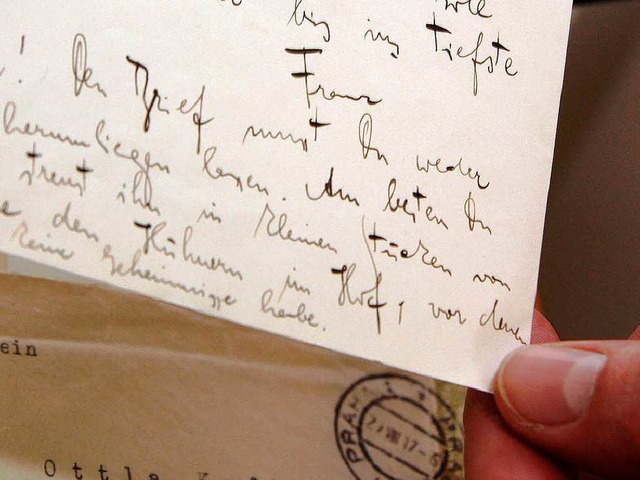 wie
bis ins tiefste
Franz
! Den Brief musst Du weder
herumliegen lassen. Am besten Du
streust ihn in kleinen Stücken von
e den Hühnern im Hof, vor denen
keine Geheimnisse habe.
ein
PRAHA
27 VIII 17-6
Ottla K